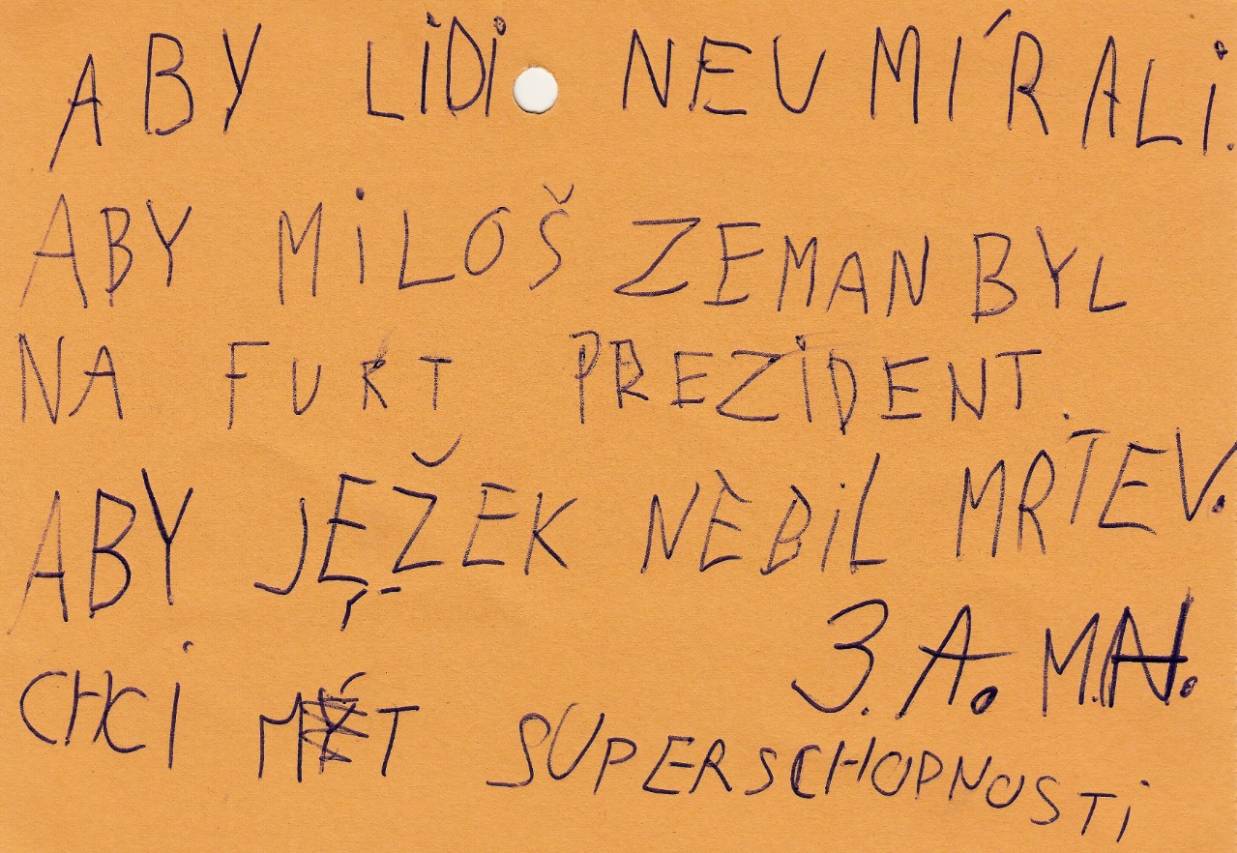 ABY LIDI NEUMÍRALI.
ABY MILOŠ ZEMAN BYL
NA FURT PREZIDENT.
ABY JEŽEK NEBIL MRTEV.
3. A. M.N.
CHCI MÍT SUPERSCHOPNOSTI